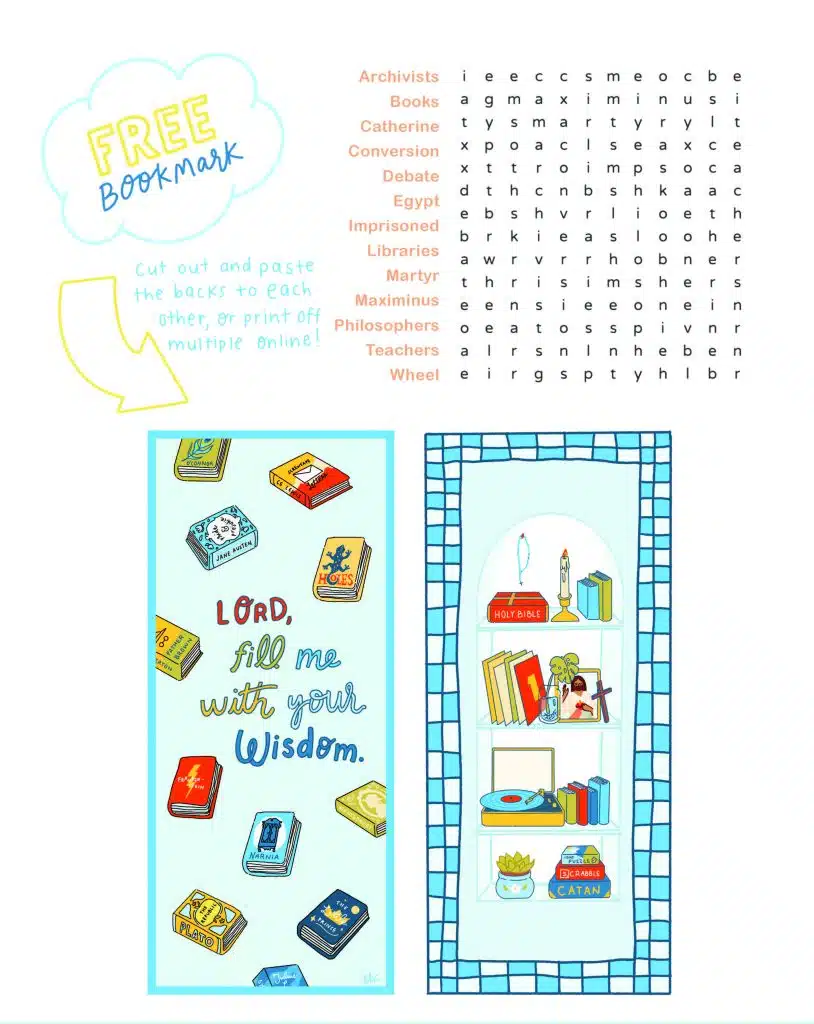 FREE
BOOKMARK
Cut out and paste
the backs to each
other, or print off
multiple online!
Archivists
Books
Catherine
Conversion
Debate
Egypt
Imprisoned
Libraries
Martyr
Maximinus
Philosophers
Teachers
Wheel
i e e c c s m e o c b e
a g m a x i m i n u s i
t y s m a r t y r y l t
x p o a c l s e a x c e
x t t r o i m p s o c a
d t h c n b s h k a a c
e b s h v r l i o e t h
b r k i e a s l o o h e
a w r v r r h o b n e r
t h r i s i m s h e r s
e e n s i e e o n e i n
o e a t o s s p i v n r
a l r s n l n h e b e n
e i r g s p t y h l b r
O'CONNOR
JANE AUSTEN
HOLES
FATHER
BROWN
LORD,
fill me
with your
Wisdom.
NARNIA
THE REPUBLIC
PLATO
THE
PRINCE
HOLY BIBLE
PUZZLE
SCRABBLE
CATAN